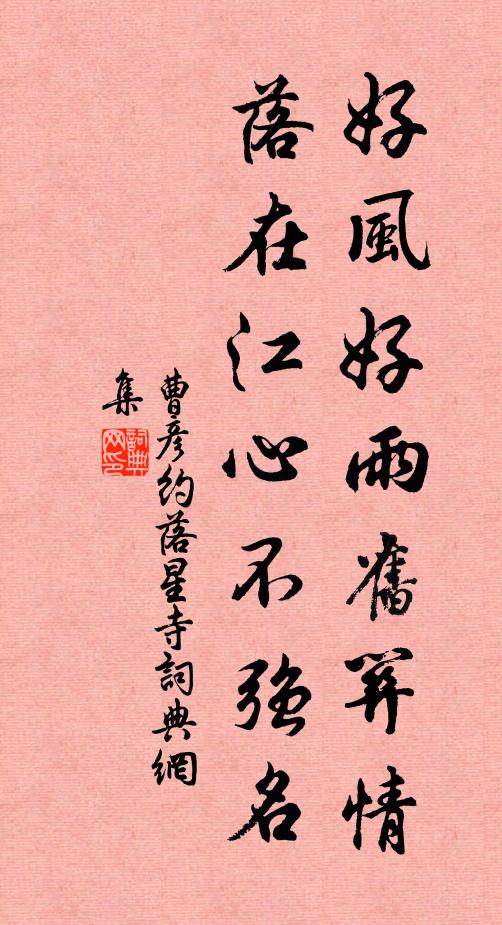 好風好雨舊關情
落在江心不強名
曹彦約落星寺詞典網
集
詞典
网印